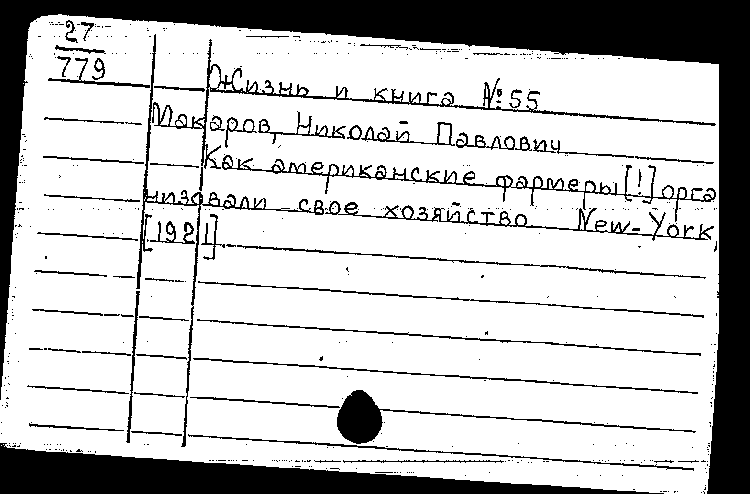 27
779
Жизнь и книга №55
Макаров, Николай Павлович
Как американские фармеры [!] орга
низовали свое хозяйство New-York,
[1921].